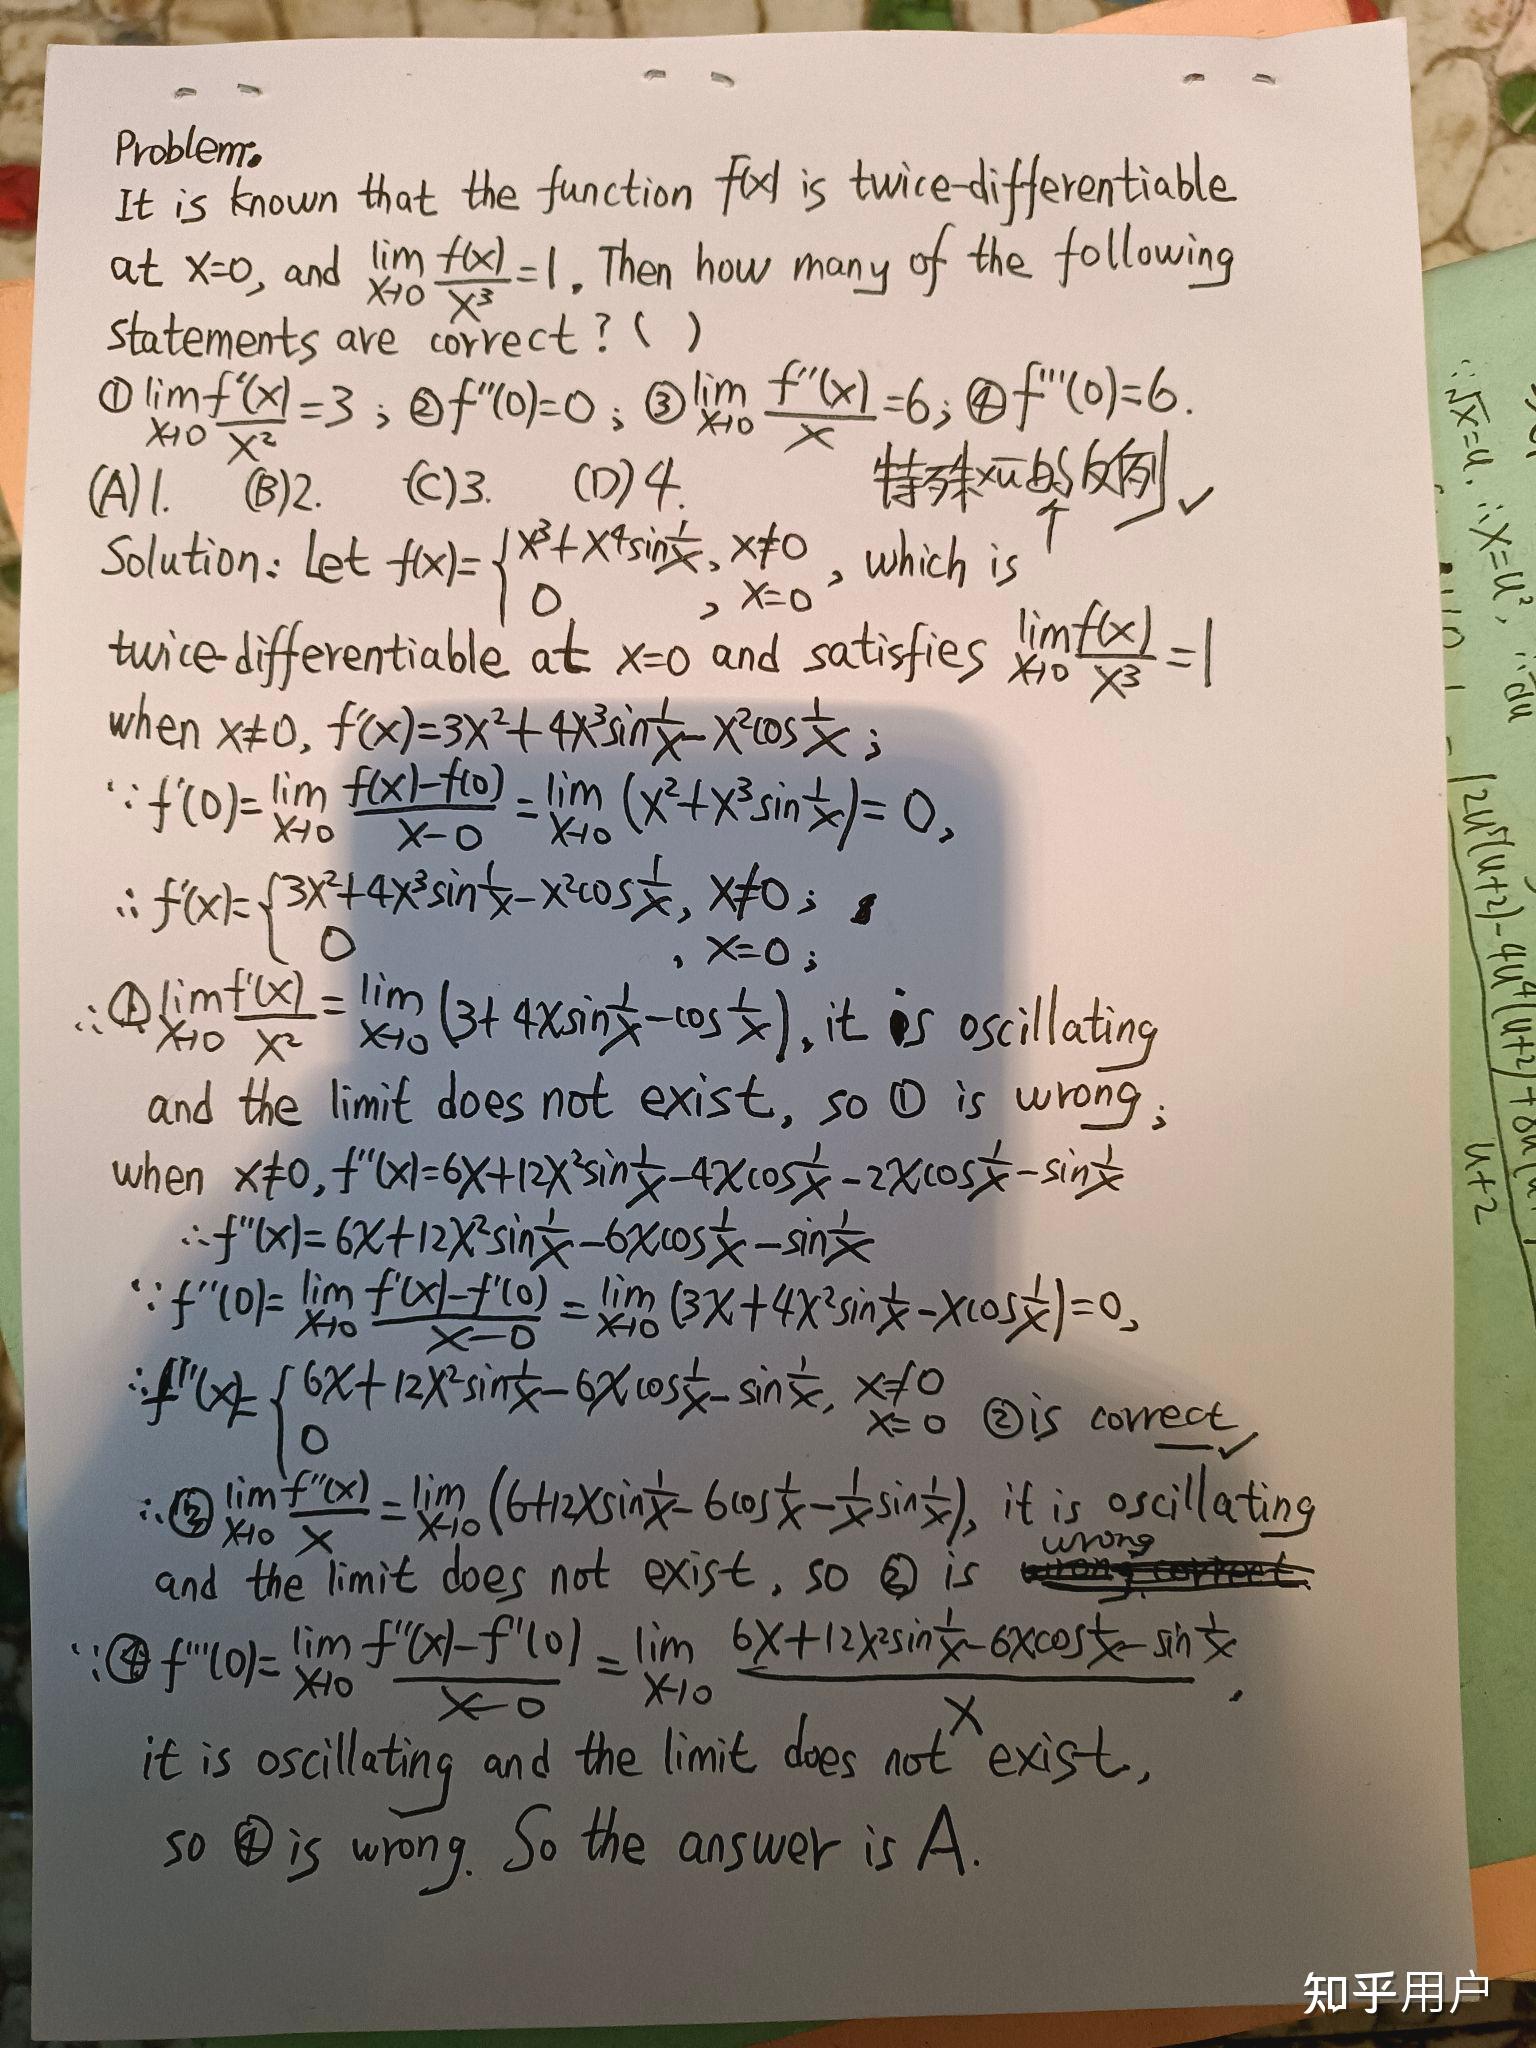 Problem:
It is known that the function f(x) is twice-differentiable
at x=0, and lim_{x→0} f(x)/x³ =1. Then how many of the following
statements are correct? ( )
① lim_{x→0} f'(x)/x² =3; ② f''(0)=0; ③ lim_{x→0} f''(x)/x =6; ④ f'''(0)=6.
(A) 1. (B) 2. (C) 3. (D) 4.
特殊 的反例 ✓
Solution: Let f(x)= { x³+x⁴sin 1/x, x≠0 , which is
0 , x=0
twice-differentiable at x=0 and satisfies lim_{x→0} f(x)/x³ =1
when x≠0, f'(x)=3x²+4x³sin 1/x − x²cos 1/x ;
∵ f'(0)= lim_{x→0} (f(x)−f(0))/(x−0) = lim_{x→0} (x²+x³sin 1/x)=0,
∴ f'(x)= { 3x²+4x³sin 1/x − x²cos 1/x, x≠0 ;
0 , x=0 ;
∴ ① lim_{x→0} f'(x)/x² = lim_{x→0} (3+4xsin 1/x − cos 1/x), it is oscillating
and the limit does not exist, so ① is wrong;
when x≠0, f''(x)=6x+12x²sin 1/x − 4xcos 1/x − 2xcos 1/x − sin 1/x
∴ f''(x)=6x+12x²sin 1/x − 6xcos 1/x − sin 1/x
∵ f''(0)= lim_{x→0} (f'(x)−f'(0))/(x−0) = lim_{x→0} (3x+4x²sin 1/x − xcos 1/x)=0,
∴ f''(x)= { 6x+12x²sin 1/x − 6xcos 1/x − sin 1/x, x≠0
0 x=0 ② is correct ✓
∴ ③ lim_{x→0} f''(x)/x = lim_{x→0} (6+12xsin 1/x − 6cos 1/x − 1/x sin 1/x), it is oscillating
and the limit does not exist, so ③ is wrong
∵ ④ f'''(0)= lim_{x→0} (f''(x)−f''(0))/(x−0) = lim_{x→0} (6x+12x²sin 1/x − 6xcos 1/x − sin 1/x)/x ,
it is oscillating and the limit does not exist,
so ④ is wrong. So the answer is A.
∴ √x=u. ∴ x=u²,
u+2
知乎用户